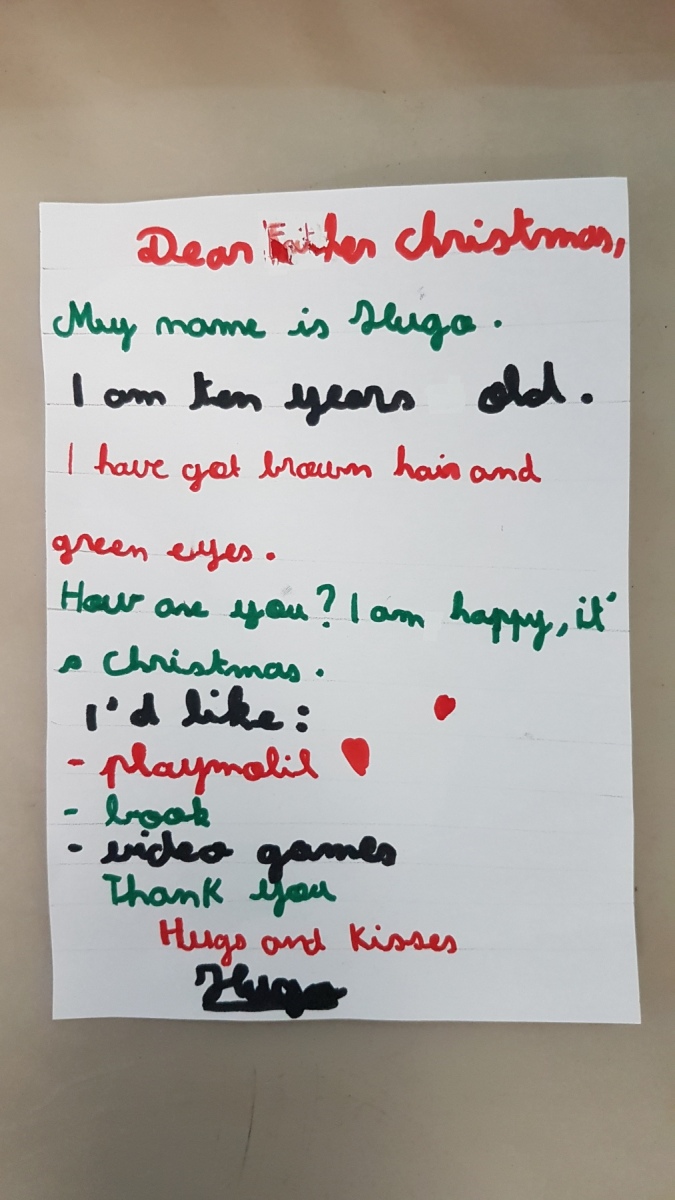 Dear Father Christmas,
My name is Hugo.
I am ten years old.
I have got brown hair and
green eyes.
How are you? I am happy, it'
s Christmas.
I'd like:
- playmobil
- book
- video games
Thank you
Hugs and Kisses
Hugo